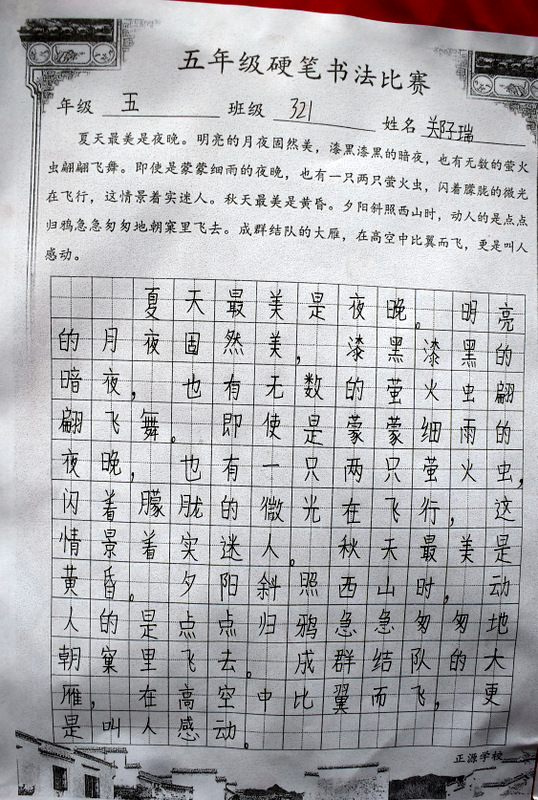 五年级硬笔书法比赛
年级 五 班级 321 姓名 郑子瑞
夏天最美是夜晚。明亮的月夜固然美，漆黑漆黑的暗夜，也有无数的萤火
虫翩翩飞舞。即使是蒙蒙细雨的夜晚，也有一只两只萤火虫，闪着朦胧的微光
在飞行，这情景着实迷人。秋天最美是黄昏。夕阳斜照西山时，动人的是点点
归鸦急急匆匆地朝窠里飞去。成群结队的大雁，在高空中比翼而飞，更是叫人
感动。
夏天最美是夜晚。明亮
的月夜固然美，漆黑漆黑的
暗夜，也有无数的萤火虫翩
翩飞舞。即使是蒙蒙细雨的
夜晚，也有一只两只萤火虫，
闪着朦胧的微光在飞行，这
情景着实迷人。秋天最美是
黄昏。夕阳斜照西山时，动
人的是点点归鸦急急匆匆地
朝窠里飞去。成群结队的大
雁，在高空中比翼而飞，更
是叫人感动。
正源学校